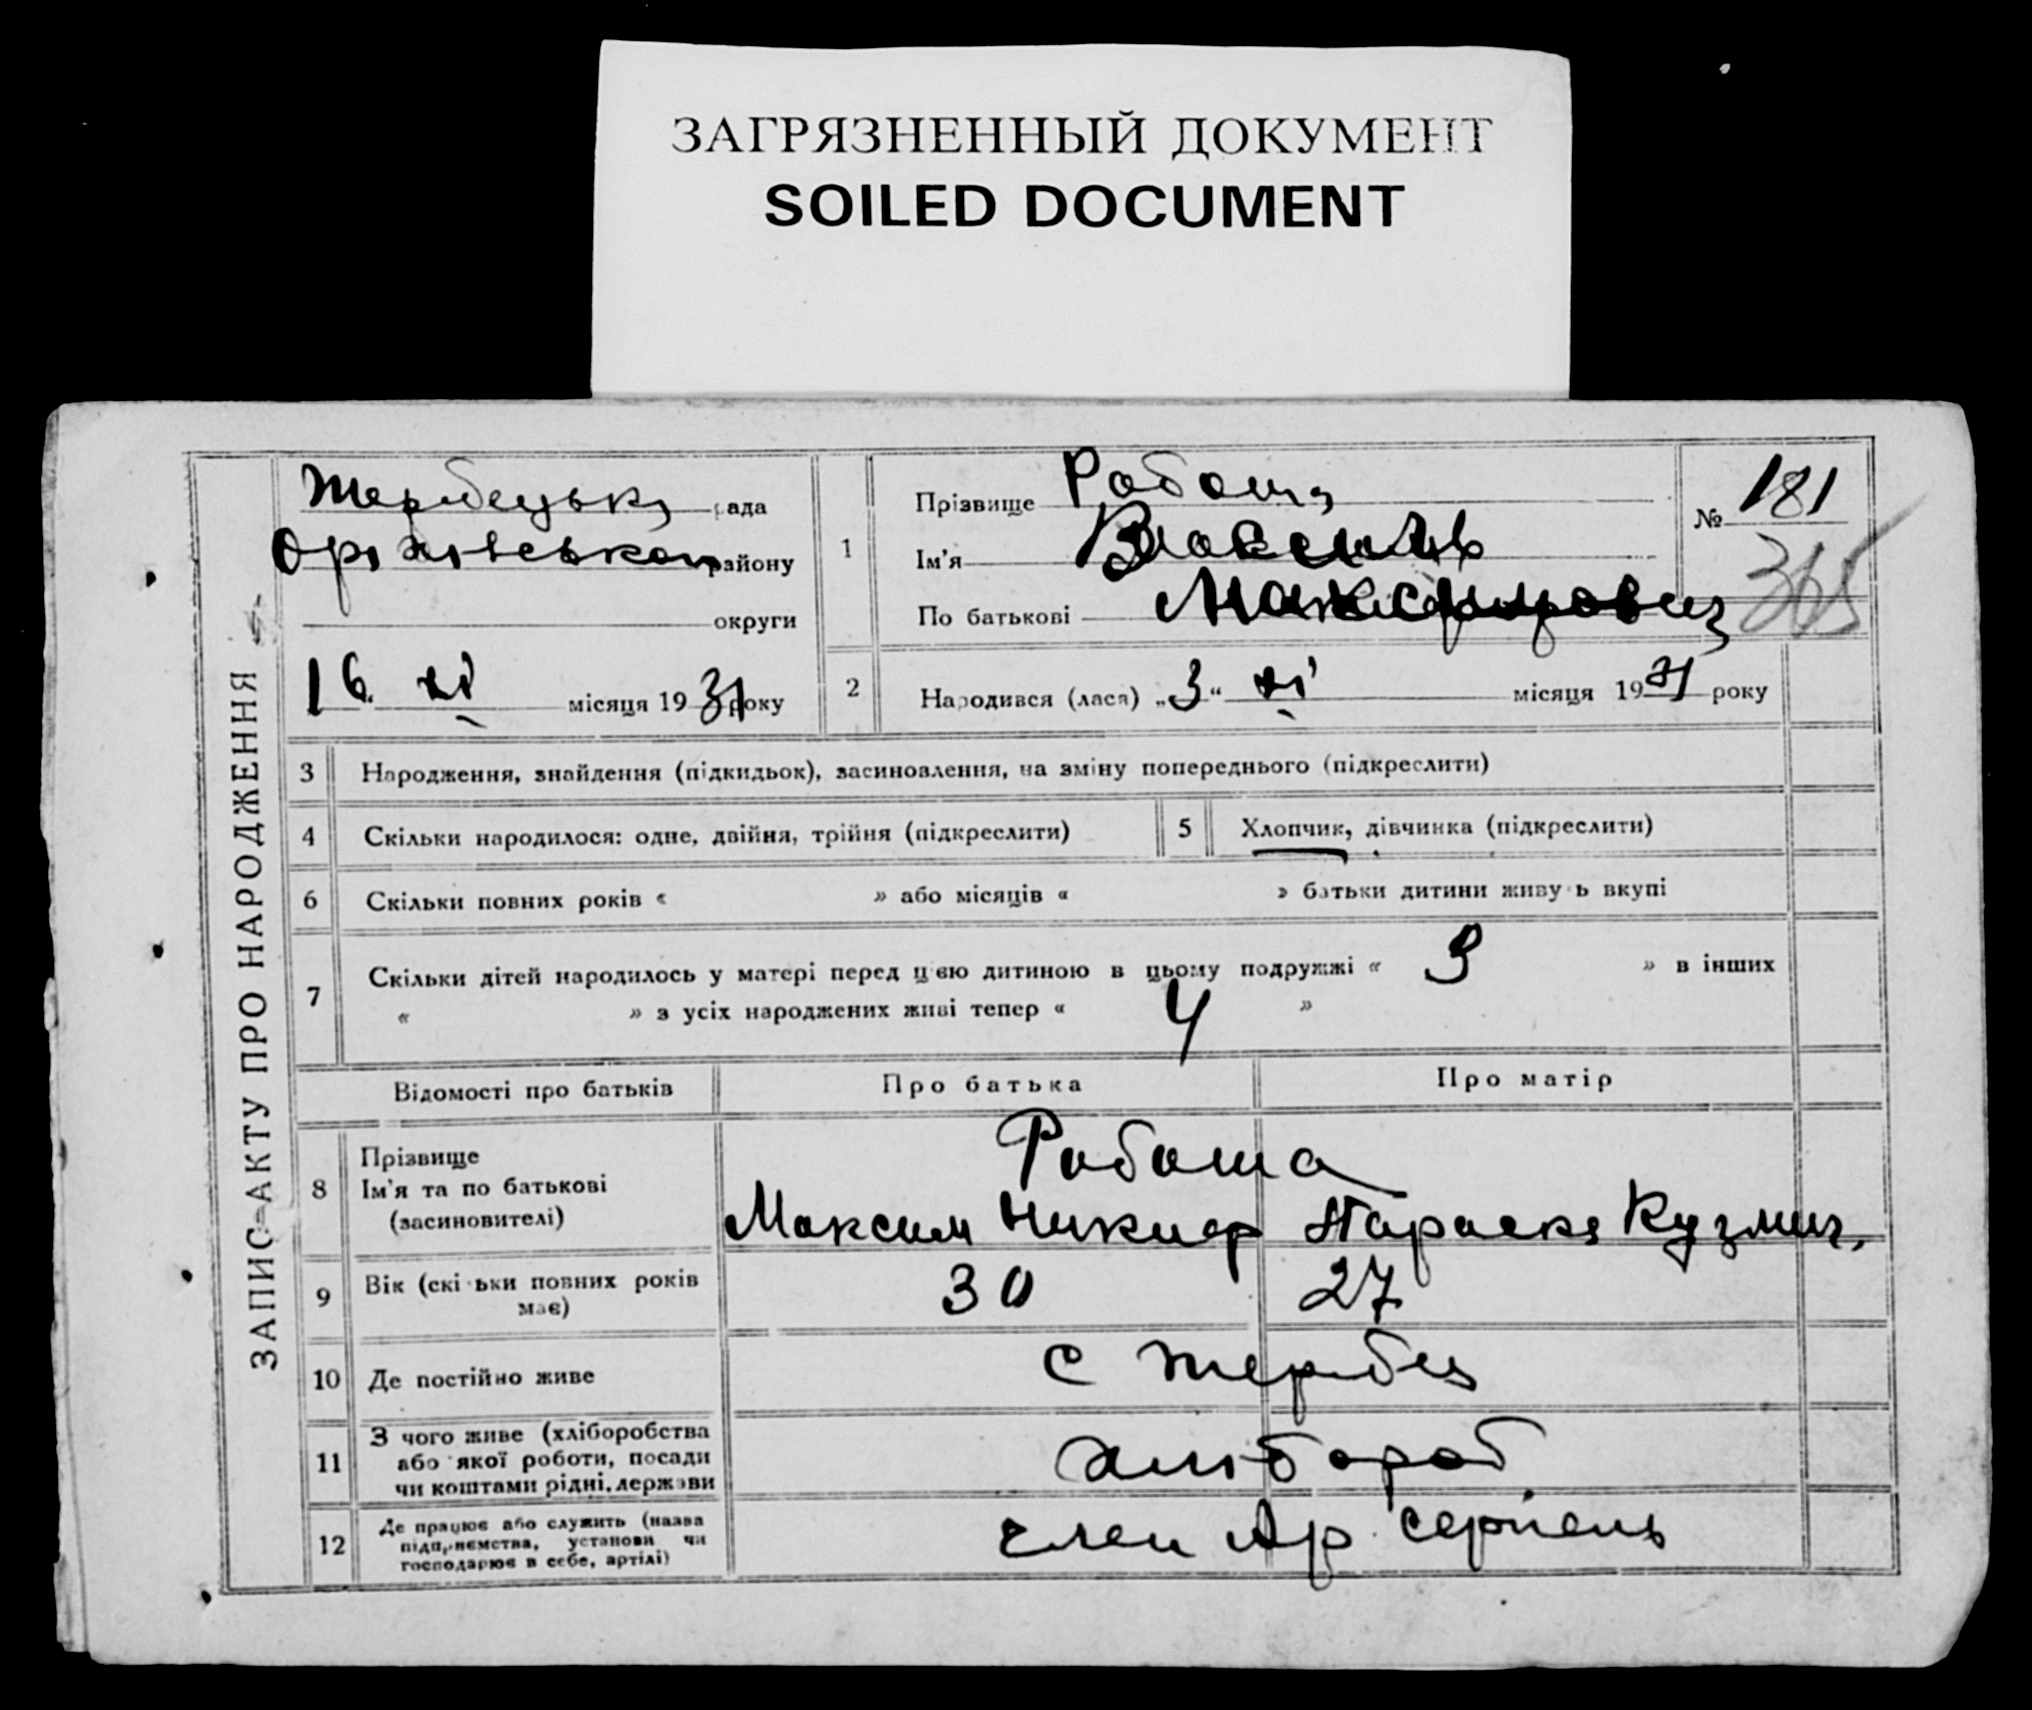 ЗАГРЯЗНЕННЫЙ ДОКУМЕНТ
SOILED DOCUMENT
ЗАПИС АКТУ ПРО НАРОДЖЕННЯ
рада
району
округи
16 XI місяця 1931 року
1 Прізвище Рабоша
Ім'я Василь
По батькові Максимович
№ 181
365
2 Народився (лася) „3“ XI місяця 1931 року
3 Народження, знайдення (підкидьок), засиновлення, на зміну попереднього (підкреслити)
4 Скільки народилося: одне, двійня, трійня (підкреслити)
5 Хлопчик, дівчинка (підкреслити)
6 Скільки повних років « » або місяців « » батьки дитини живуть вкупі
7 Скільки дітей народилось у матері перед цією дитиною в цьому подружжі « 3 » в інших
« » з усіх народжених живі тепер « 4 »
Відомості про батьків Про батька Про матір
8 Прізвище
Ім'я та по батькові
(засиновителі)
Рабоша
Максим Никиф Параска Кузмич.
9 Вік (скільки повних років
має)
30 27
10 Де постійно живе
с Жеребец
11 З чого живе (хліборобства
або якої роботи, посади
чи коштами рідні, держави
хлібороб
12 Де працює або служить (назва
підприємства, установи чи
господарює в себе, артілі)
член Ар серпень